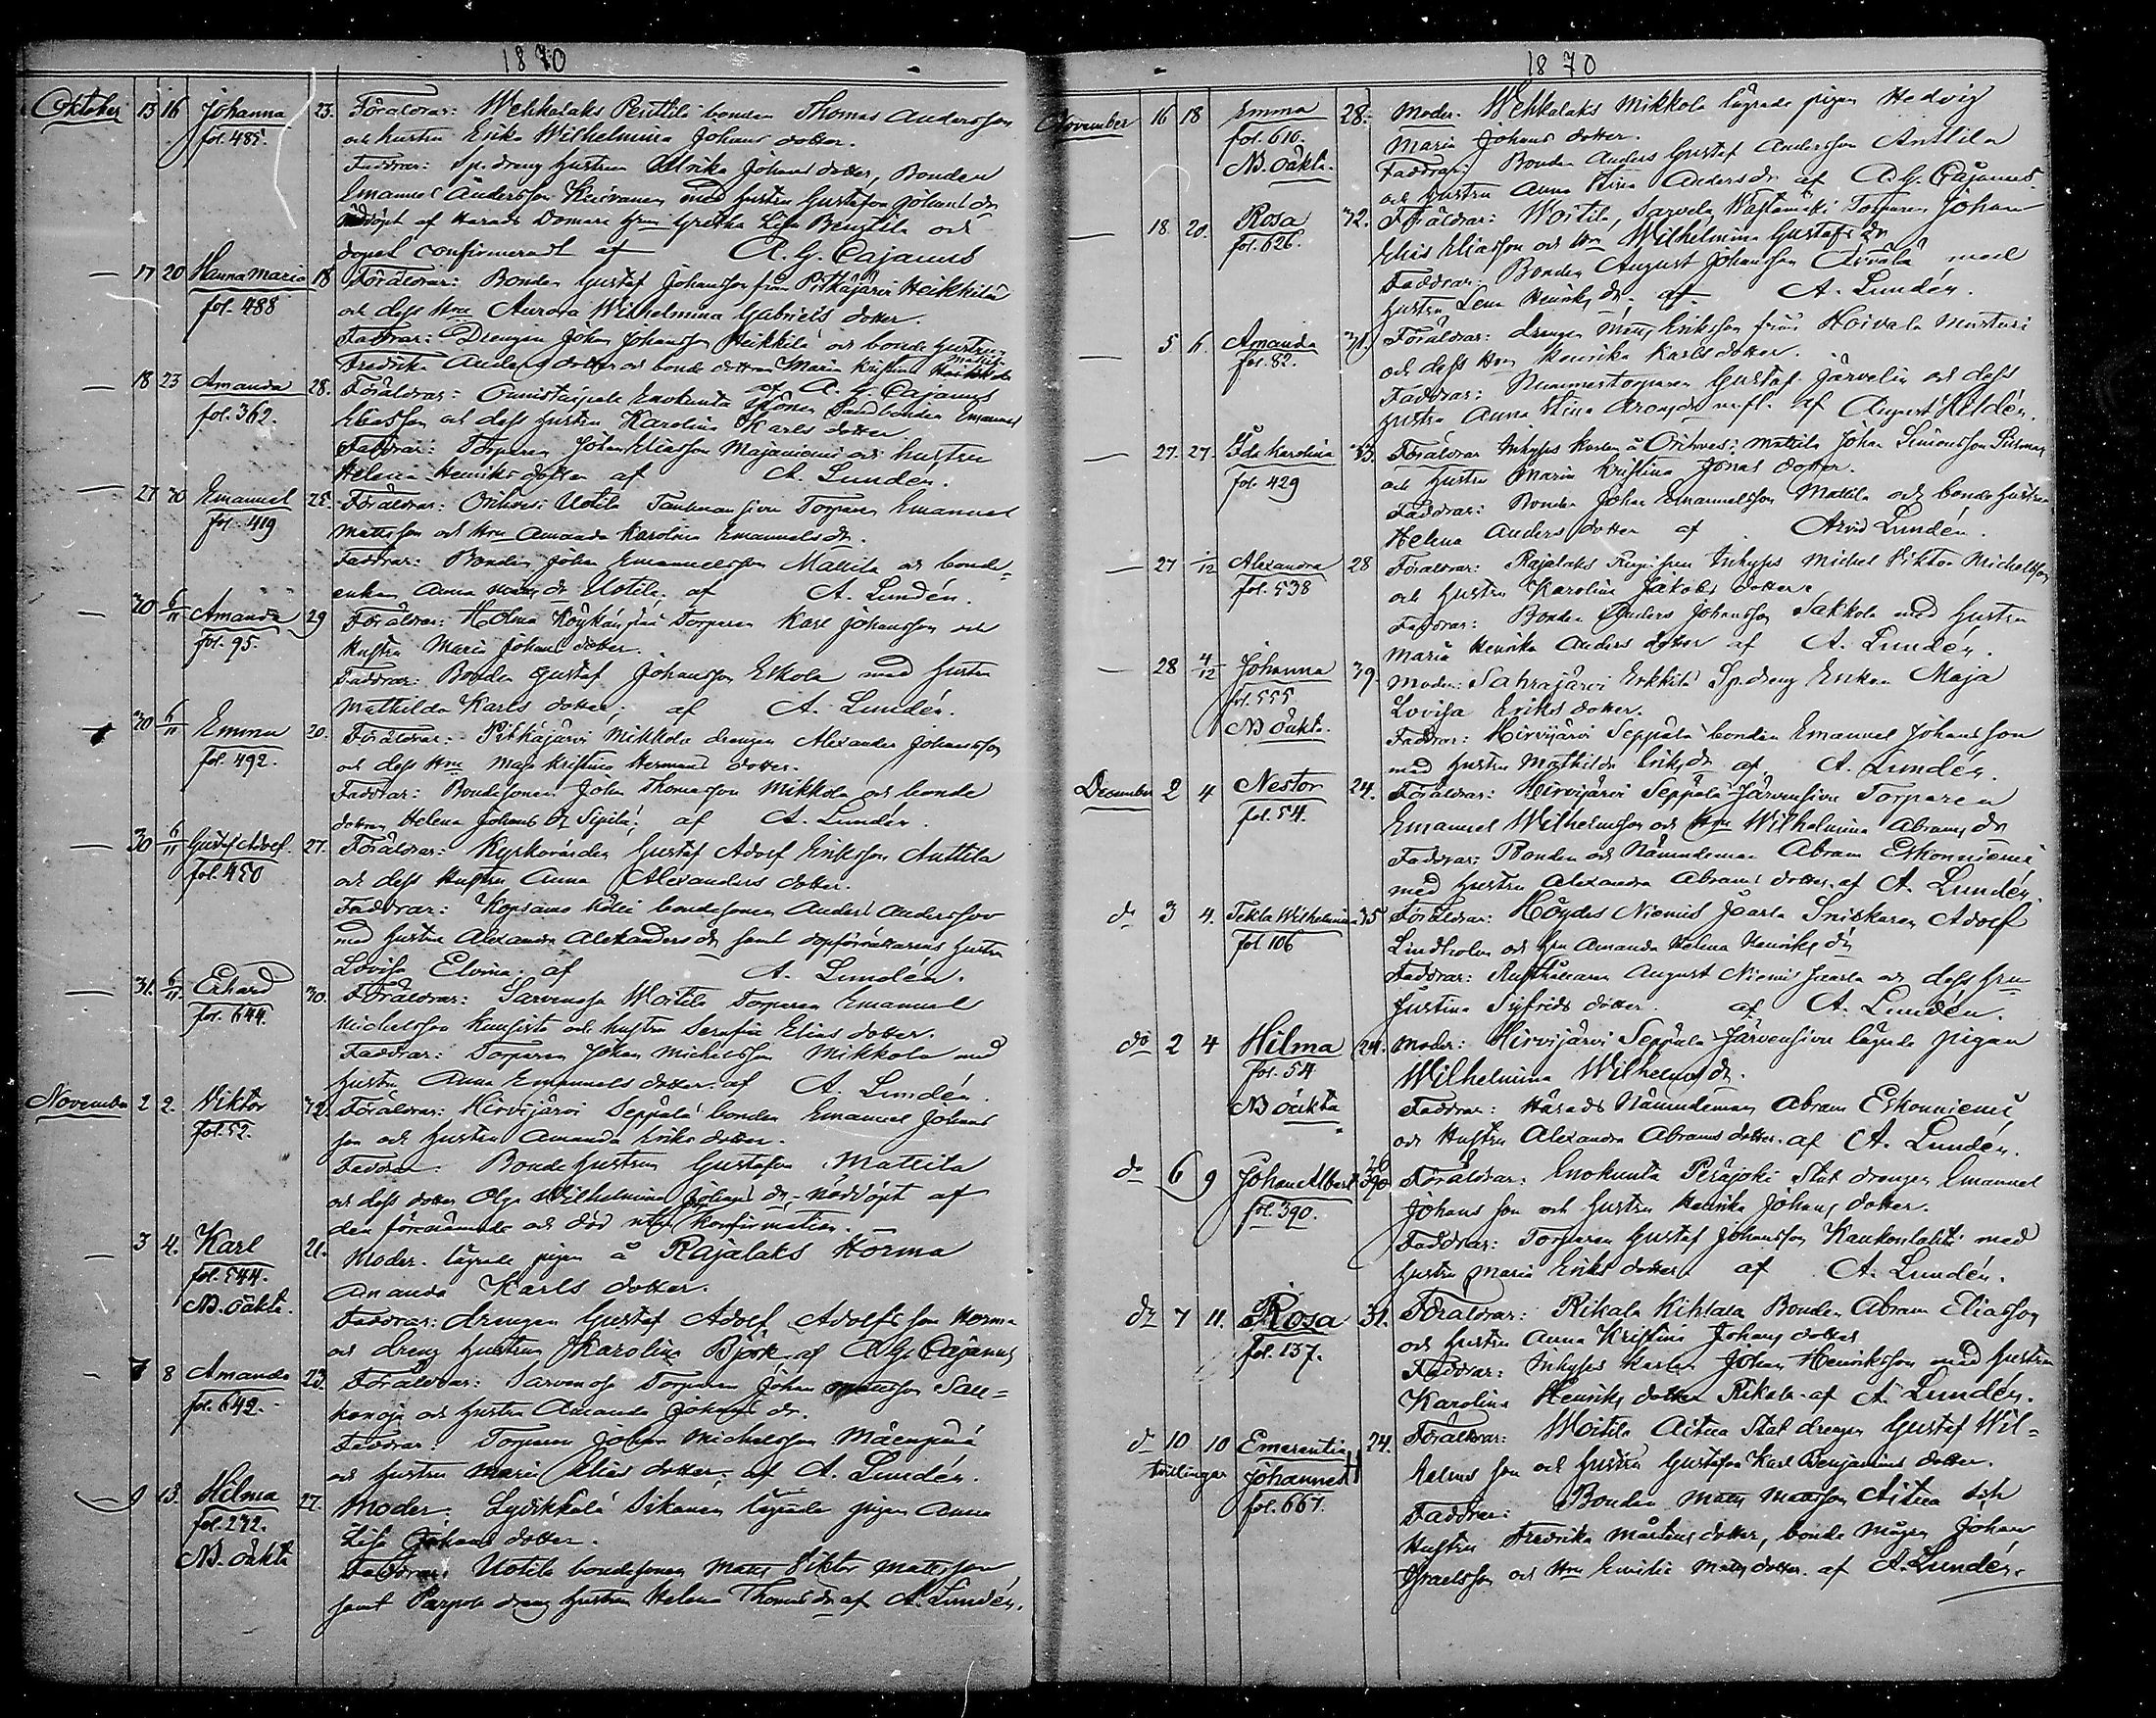 1870
Oktober 13 16 Johanna 23. Föräldrar: Wehkalaks Perttili bonden Thomas Andersson
fol. 485. och hustru Erika Wilhelmina Johans dotter.
Faddrar: Sp. dreng hustrun Ulrika Johans dotter, Bonden
Emanuel Andersson Keisvanen med hustru Gustafva Johans dr
nöddöpt af Härads Domare hrun Gretha Lisa Benjtila och
dopet confirmeradt af A. G. Cajanus
— 17 20 Hanna Maria 18 Föräldrar: Bonden Gustaf Johansson från Pitkäjärvi Heikkilä
fol. 488 och dess hru Aurora Wilhelmina Gabriels dotter.
Faddrar: Drengen Johan Johansson Heikkilä och bonde hustrun
Fredrika Anders dotter och bonde dottren Maria Kristina Matts dr
af A. G. Cajanus
— 18 23 Amanda 28. Föräldrar: Onnistaipale Enokunta bonden Emanuel
fol. 362. Eliasson och dess hustru Karolina Karls dotter
Faddrar: Torparen Johan Eliasson Majaniemi och hustru
Helena Henriks dotter af A. Lundén.
— 27 30 Emanuel 25. Föräldrar: Orihvesi Uotila Torparen Emanuel
fol. 419 Mattsson och hru Amanda Karolina Emanuels dr.
Faddrar: Bonden Johan Emanuelsson Mattila och bonde-
enkan Anna Matts dr Uotila. af A. Lundén.
— 30 6/11 Amanda 29 Föräldrar: Holma Torparen Karl Johansson och
fol. 95. hustru Maria Johans dotter.
Faddrar: Bonden Gustaf Johansson Eskola med hustru
Mathilda Karls dotter. af A. Lundén.
30 6/11 Emma 20. Föräldrar: Pitkäjärvi Mikkola drengen Alexander Johansson
fol. 492. och dess hru Maja Kristina Hermans dotter.
Faddrar: Bondesonen Johan Thomasson Mikkola och bonde
dottren Helena Johans dr Sipilä; af A. Lundén.
— 30 6/11 Gustaf Adolf. 27. Föräldrar: Kyrkovärden Gustaf Adolf Eriksson Anttila
fol. 450 och dess hustru Anna Alexanders dotter.
Faddrar: Kopsamo Kölli bondesonen Anders Andersson
med hustru Alexandra Alexanders dr samt dopförrättarens hustru
Lovisa Elvina. af A. Lundén.
— 31. 6/11 Erhard 30. Föräldrar: Sarvenoja Woitila Torparen Emanuel
fol. 644. Michelsson Kuusisto och hustru Serafia Elias dotter.
Faddrar: Torparen Johan Michelsson Mikkola med
hustru Anna Emanuels dotter. af A. Lundén.
November 2 2. Viktor 32 Föräldrar: Hirvijärvi Seppälä bonden Emanuel Johans
fol. 52. son och hustru Amanda Eriks dotter.
Faddrar: Bonde hustrun Gustafva Mattila
och dess dotter Olga Wilhelmina Johans dr, nöddöpt af
den förenämnde och död utan konfirmation.
— 3 4. Karl 21. Moder. lägrade pigan å Rajalaks Horma
fol. 544. Amanda Karls dotter.
NB. oäkta. Faddrar: drengen Gustaf Adolf Adolfsson Horma
och dreng hustrun Karolina Björk af A. G. Cajanus
— 7 8 Amanda 23. Föräldrar: Sarvenoja Torparen Johan Mattsson Sal-
fol. 642. kanoja och hustru Amanda Johans dr.
Faddrar: Torparen Johan Michelsson Mäenpää
och hustru Maria Elias dotter. af A. Lundén.
— 9 13. Hilma 27. Moder. Lyöikkälä Sikanen lägrade pigan Anna
fol. 272. Lisa Johans dotter.
NB. oäkta Faddrar: Uotila bondesonen Matts Viktor Mattsson
samt Parpola dreng hustrun Helena Thomas dr af A. Lundén.
1870
November 16 18 Emma 28. Moder. Wehkalaks Mikkola lägrade pigan Hedvig
fol. 610. Maria Johans dotter.
NB. oäkta. Faddrar: Bonden Anders Gustaf Andersson Anttila
och hustru Anna Stina Anders dr af A. G. Cajanus.
— 18 20. Rosa 32. Föräldrar: Woitila, Sarvela, Torparen Johan
fol. 626. Elias Eliasson och hru Wilhelmina Gustafs dr
Faddrar: Bonden August Johansson Arvala med
hustru Lena Henriks dr. af A. Lundén.
— 5 6. Amanda 31. Föräldrar: drengen Matts Eriksson från Hoivala Musturi
fol. 82. och dess hru Henrika Karls dotter.
Faddrar: Nummertorparen Gustaf Järvelin och dess
hustru Anna Stina Arons dr m. fl. af August Hildén.
— 27. 27. Ida Karolina 33. Föräldrar Inhyses karlen å Orihvesi Mattila Johan Simonsson
fol. 429 och hustru Maria Kristina Jonas dotter.
Faddrar: Bonden Johan Emanuelsson Mattila och bonde hustrun
Helena Anders dotter af Arvid Lundén.
— 27 1/12 Alexandra 28 Föräldrar: Rajalaks Inhyses Michel Viktor Michelsson
fol. 538 och hustru Karolina Jakobs dotter.
Faddrar: Bonden Anders Johansson Sakkola med hustru
Maria Henrika Anders dotter af A. Lundén.
— 28 4/12 Johanna 39. Moder: Sahrajärvi Erkkilä Sp. dreng Enkan Maja
fol. 555 Lovisa Eriks dotter.
NB oäkta. Faddrar: Hirvijärvi Seppälä bonden Emanuel Johansson
med hustru Mathilda Eriks dr af A. Lundén.
December 2 4 Nestor 24. Föräldrar: Hirvijärvi Seppälä Järvensivu Torparen
fol. 54. Emanuel Wilhelmsson och hru Wilhelmina Abrams dr
Faddrar: Bonden och Nämndeman Abram Eskonniemi
med hustru Alexandra Abrams dotter. af A. Lundén.
do 3 4. Tekla Wilhelmina 35 Föräldrar: Höydes Niemis Jaarla Snickaren Adolf
fol 106 Lindholm och hru Amanda Helena Henriks dr
Faddrar: Rusthållaren August Niemis Jaarla och dess hru
Justina Sigfrids dotter. af A. Lundén.
do 2 4 Hilma 24. Moder: Hirvijärvi Seppälä Järvensivu lägrade pigan
fol. 54 Wilhelmina Wilhelms dr.
NB oäkta Faddrar: Härads Nämndeman Abram Eskonniemi
och hustru Alexandra Abrams dotter. af A. Lundén.
do 6 9 Johan Albert 26 Föräldrar: Enokunta Peräjoki Stat drengen Emanuel
fol. 390. Johans son och hustru Henrika Johans dotter.
Faddrar: Torparen Gustaf Johansson Kaukonlahti med
hustru Maria Eriks dotter af A. Lundén.
do 7 11. Rosa 31. Föräldrar: Rikala Kihlala Bonden Abram Eliasson
fol. 137. och hustru Anna Kristina Johans dotter
Faddrar: Inhyses karlen Johan Henriksson med hustru
Karolina Henriks dotter Rikala. af A. Lundén.
do 10 10 Emerentia 24. Föräldrar: Woitila Aitua Stat drengen Gustaf Wil-
tvillingar Johannes helms son och hustru Gustafva Karl Benjamins dotter.
fol. 667. Faddrar: Bonden Matts Mattsson Aitua och
hustru Fredrika Mårtens dotter, bonde mågen Johan
Israelsson och hru Emilia Matts dotter. af A. Lundén.